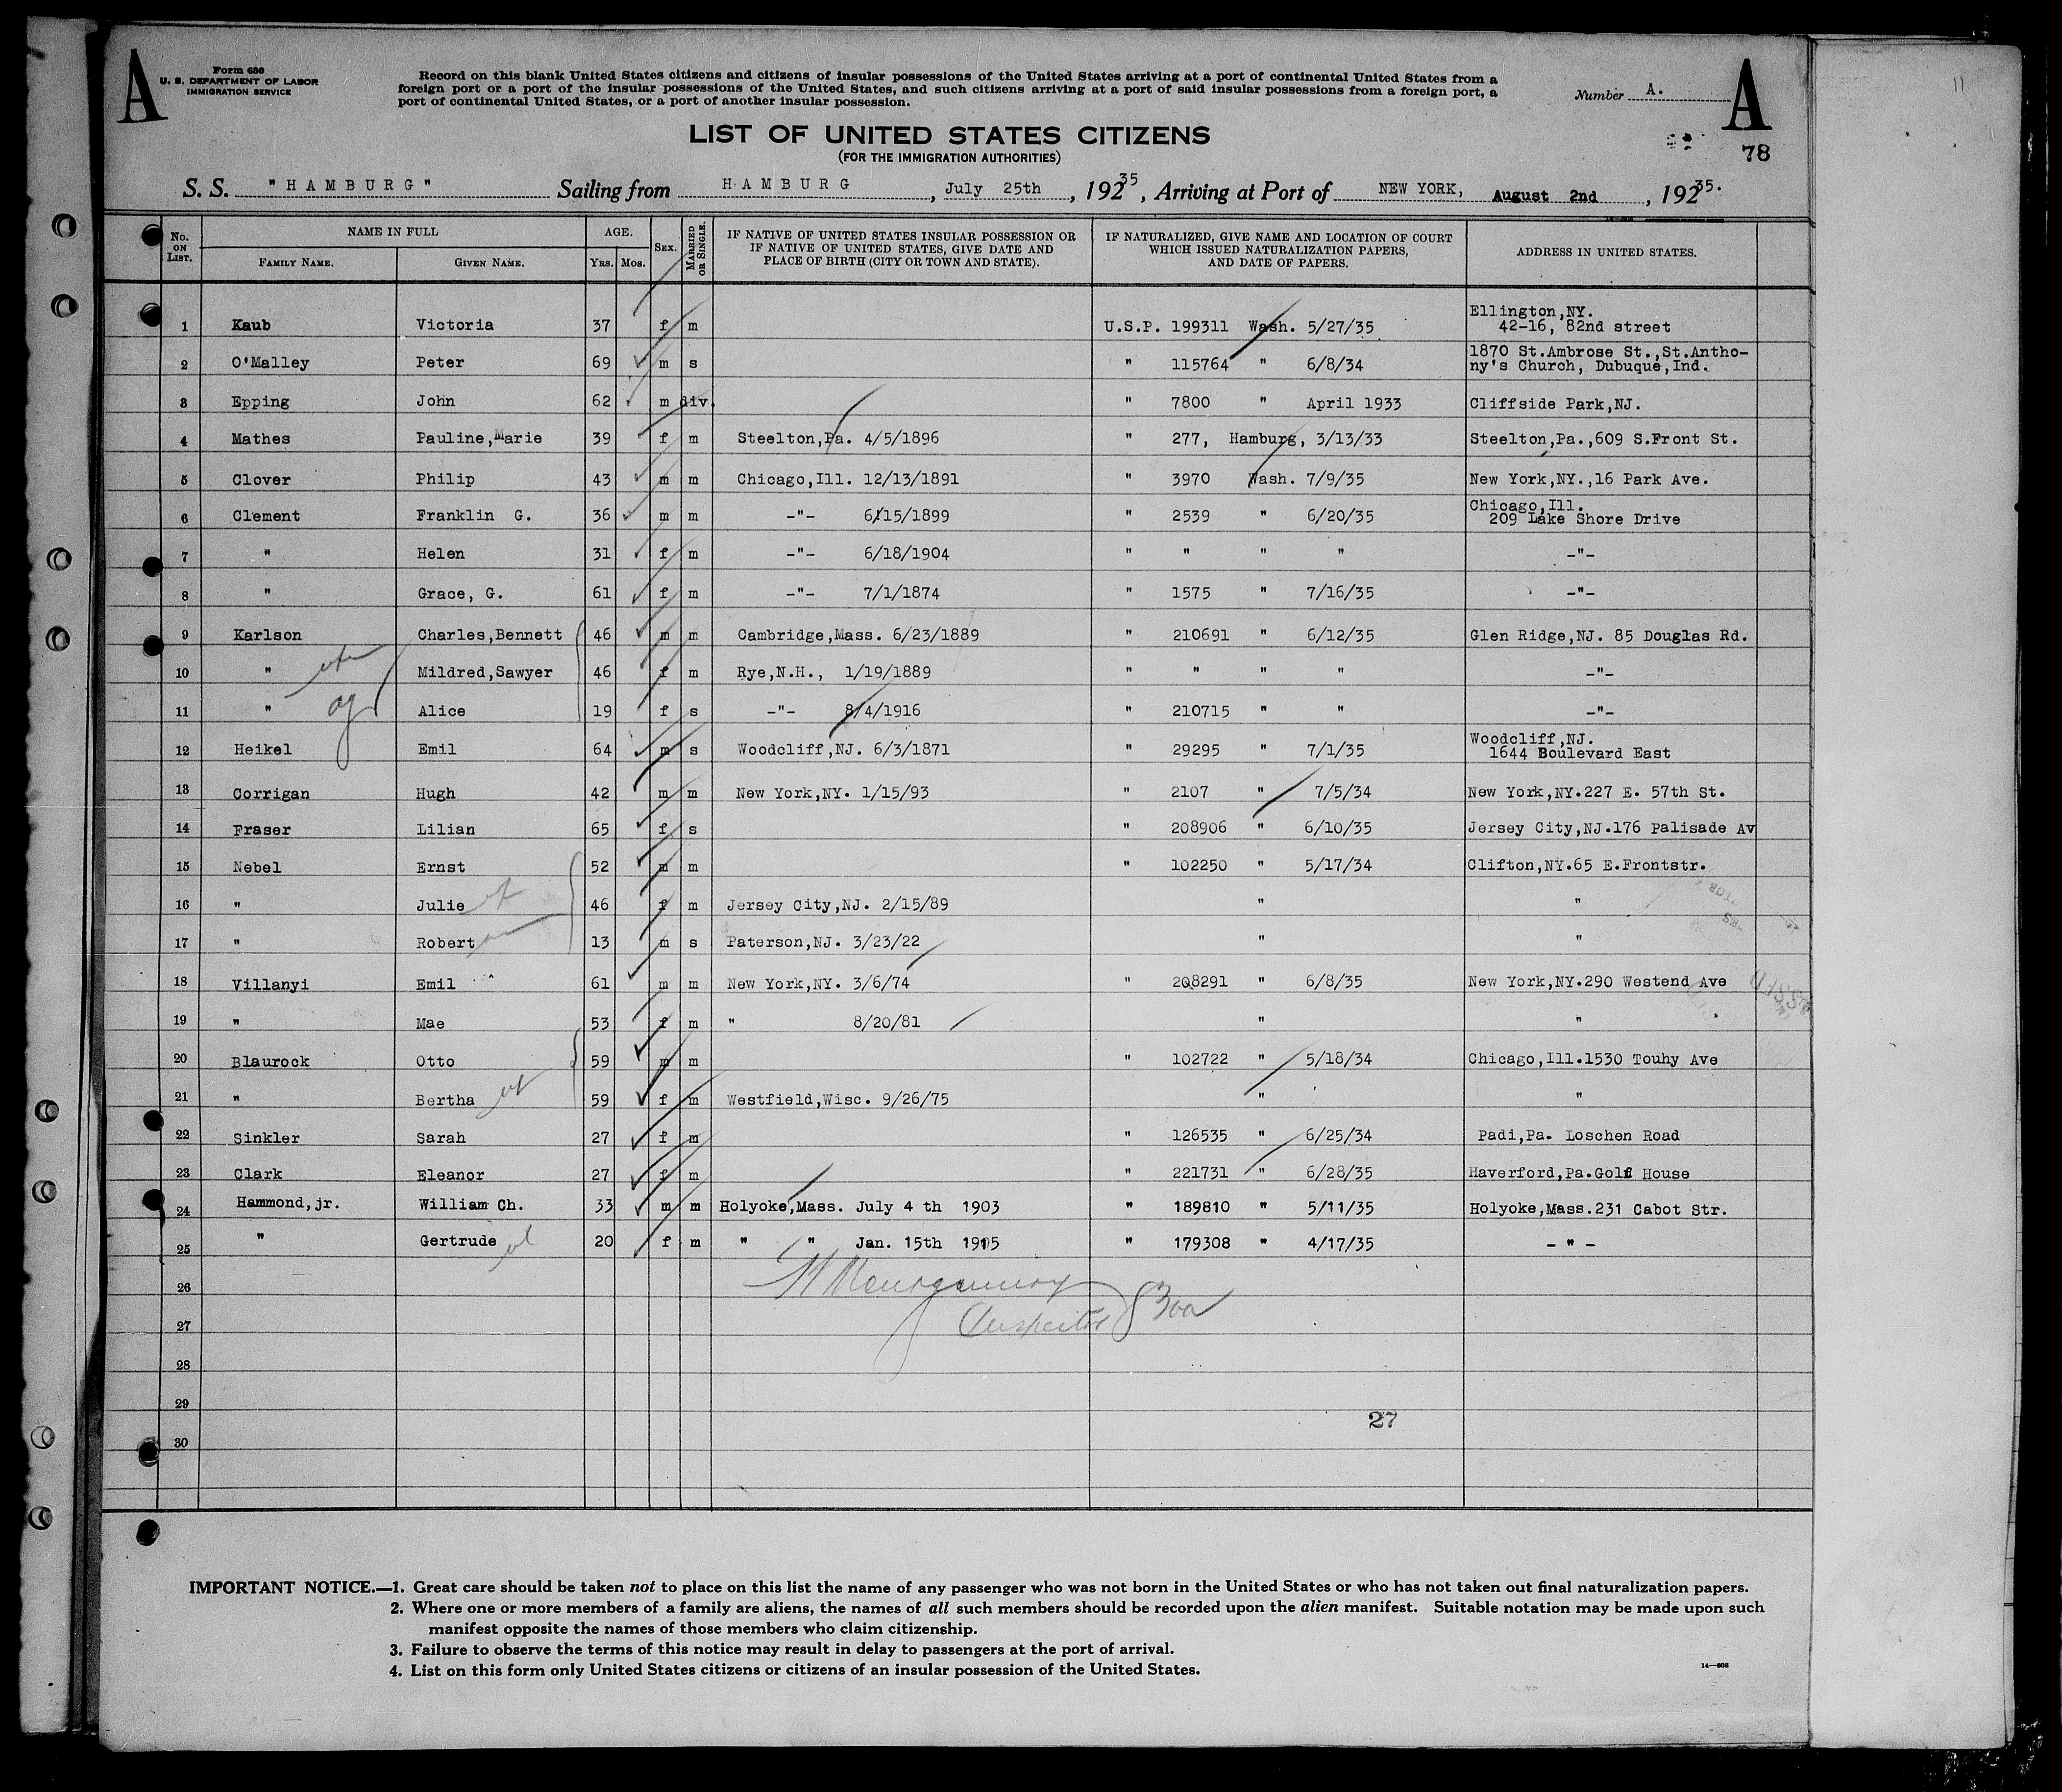 A
Form 630
U. S. DEPARTMENT OF LABOR
IMMIGRATION SERVICE
Record on this blank United States citizens and citizens of insular possessions of the United States arriving at a port of continental United States from a
foreign port or a port of the insular possessions of the United States, and such citizens arriving at a port of said insular possessions from a foreign port, a
port of continental United States, or a port of another insular possession.
Number A.
A
78
LIST OF UNITED STATES CITIZENS
(FOR THE IMMIGRATION AUTHORITIES)
S. S. "HAMBURG" Sailing from HAMBURG, July 25th, 19235, Arriving at Port of NEW YORK, August 2nd, 19235.
No. ON LIST. NAME IN FULL AGE. SEX. MARRIED OR SINGLE. IF NATIVE OF UNITED STATES INSULAR POSSESSION OR IF NATIVE OF UNITED STATES, GIVE DATE AND PLACE OF BIRTH (CITY OR TOWN AND STATE). IF NATURALIZED, GIVE NAME AND LOCATION OF COURT WHICH ISSUED NATURALIZATION PAPERS, AND DATE OF PAPERS. ADDRESS IN UNITED STATES.
FAMILY NAME. GIVEN NAME. YRS. MOS.
1 Kaub Victoria 37 f m U.S.P. 199311 Wash. 5/27/35 Ellington,NY. 42-16, 82nd street
2 O'Malley Peter 69 m s " 115764 " 6/8/34 1870 St.Ambrose St.,St.Antho- ny's Church, Dubuque,Ind.
3 Epping John 62 m div. " 7800 " April 1933 Cliffside Park,NJ.
4 Mathes Pauline,Marie 39 f m Steelton,Pa. 4/5/1896 " 277, Hamburg, 3/13/33 Steelton,Pa.,609 S.Front St.
5 Clover Philip 43 m m Chicago,Ill. 12/13/1891 " 3970 Wash. 7/9/35 New York,NY.,16 Park Ave.
6 Clement Franklin G. 36 m m -"- 6/15/1899 " 2539 " 6/20/35 Chicago,Ill. 209 Lake Shore Drive
7 " Helen 31 f m -"- 6/18/1904 " " " " -"-
8 " Grace, G. 61 f m -"- 7/1/1874 " 1575 " 7/16/35 -"-
9 Karlson Charles,Bennett 46 m m Cambridge,Mass. 6/23/1889 " 210691 " 6/12/35 Glen Ridge,NJ. 85 Douglas Rd.
10 " Mildred,Sawyer 46 f m Rye,N.H., 1/19/1889 " " " " -"-
11 " Alice 19 f s -"- 8/4/1916 " 210715 " " -"-
12 Heikel Emil 64 m s Woodcliff,NJ. 6/3/1871 " 29295 " 7/1/35 Woodcliff,NJ. 1644 Boulevard East
13 Corrigan Hugh 42 m m New York,NY. 1/15/93 " 2107 " 7/5/34 New York,NY.227 E. 57th St.
14 Fraser Lilian 65 f s " 208906 " 6/10/35 Jersey City,NJ.176 Palisade Av
15 Nebel Ernst 52 m m " 102250 " 5/17/34 Clifton,NY.65 E.Frontstr.
16 " Julie 46 f m Jersey City,NJ. 2/15/89 " "
17 " Robert 13 m s Paterson,NJ. 3/23/22 " "
18 Villanyi Emil 61 m m New York,NY. 3/6/74 " 208291 " 6/8/35 New York,NY.290 Westend Ave
19 " Mae 53 f m " 8/20/81 " "
20 Blaurock Otto 59 m m " 102722 " 5/18/34 Chicago,Ill.1530 Touhy Ave
21 " Bertha 59 f m Westfield,Wisc. 9/26/75 " "
22 Sinkler Sarah 27 f m " 126535 " 6/25/34 Padi,Pa. Loschen Road
23 Clark Eleanor 27 f m " 221731 " 6/28/35 Haverford,Pa.Golf House
24 Hammond,jr. William Ch. 33 m m Holyoke,Mass. July 4 th 1903 " 189810 " 5/11/35 Holyoke,Mass.231 Cabot Str.
25 " Gertrude 20 f m " " Jan. 15th 1915 " 179308 " 4/17/35 - " -
26
27
28
29
27
30
IMPORTANT NOTICE.—1. Great care should be taken not to place on this list the name of any passenger who was not born in the United States or who has not taken out final naturalization papers.
2. Where one or more members of a family are aliens, the names of all such members should be recorded upon the alien manifest. Suitable notation may be made upon such
manifest opposite the names of those members who claim citizenship.
3. Failure to observe the terms of this notice may result in delay to passengers at the port of arrival.
4. List on this form only United States citizens or citizens of an insular possession of the United States.